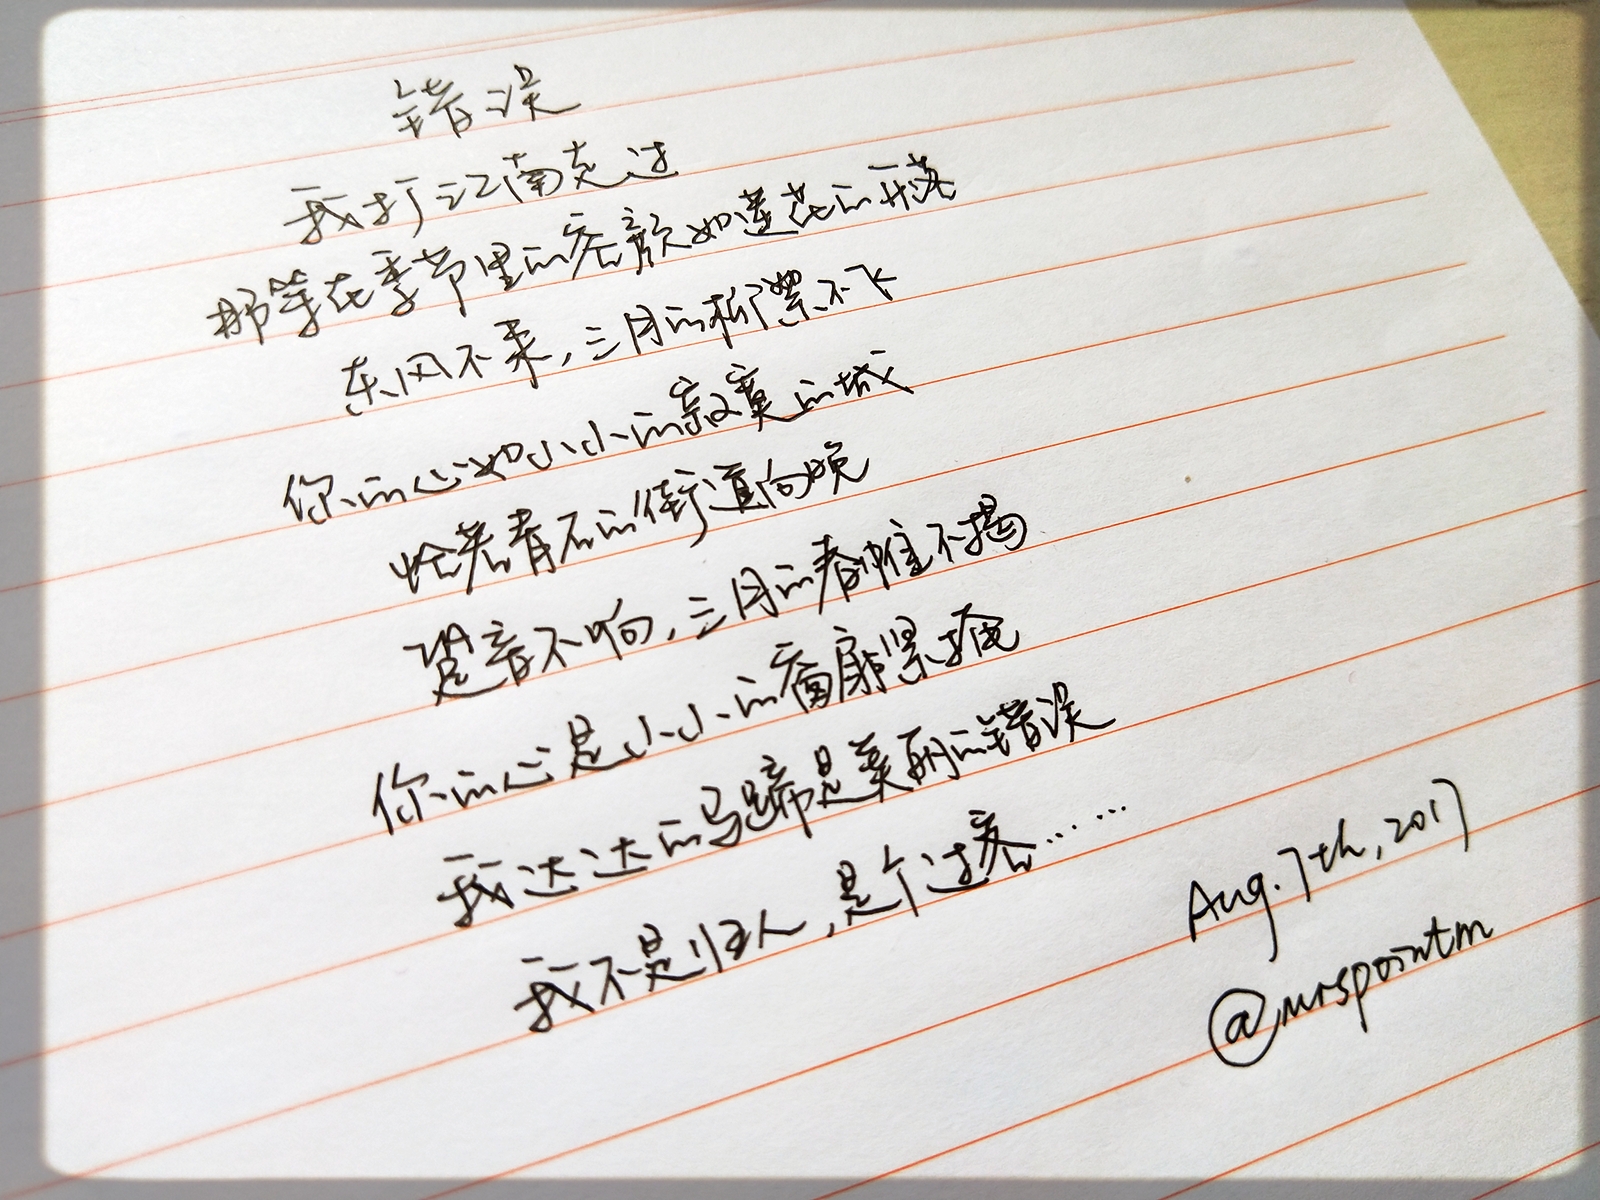 错误
我打江南走过
那等在季节里的容颜如莲花的开落
东风不来,三月的柳絮不飞
你的心如小小的寂寞的城
恰若青石的街道向晚
跫音不响,三月的春帷不揭
你的心是小小的窗扉紧掩
我达达的马蹄是美丽的错误
我不是归人,是个过客……
Aug. 7th, 2017
@mrspointm